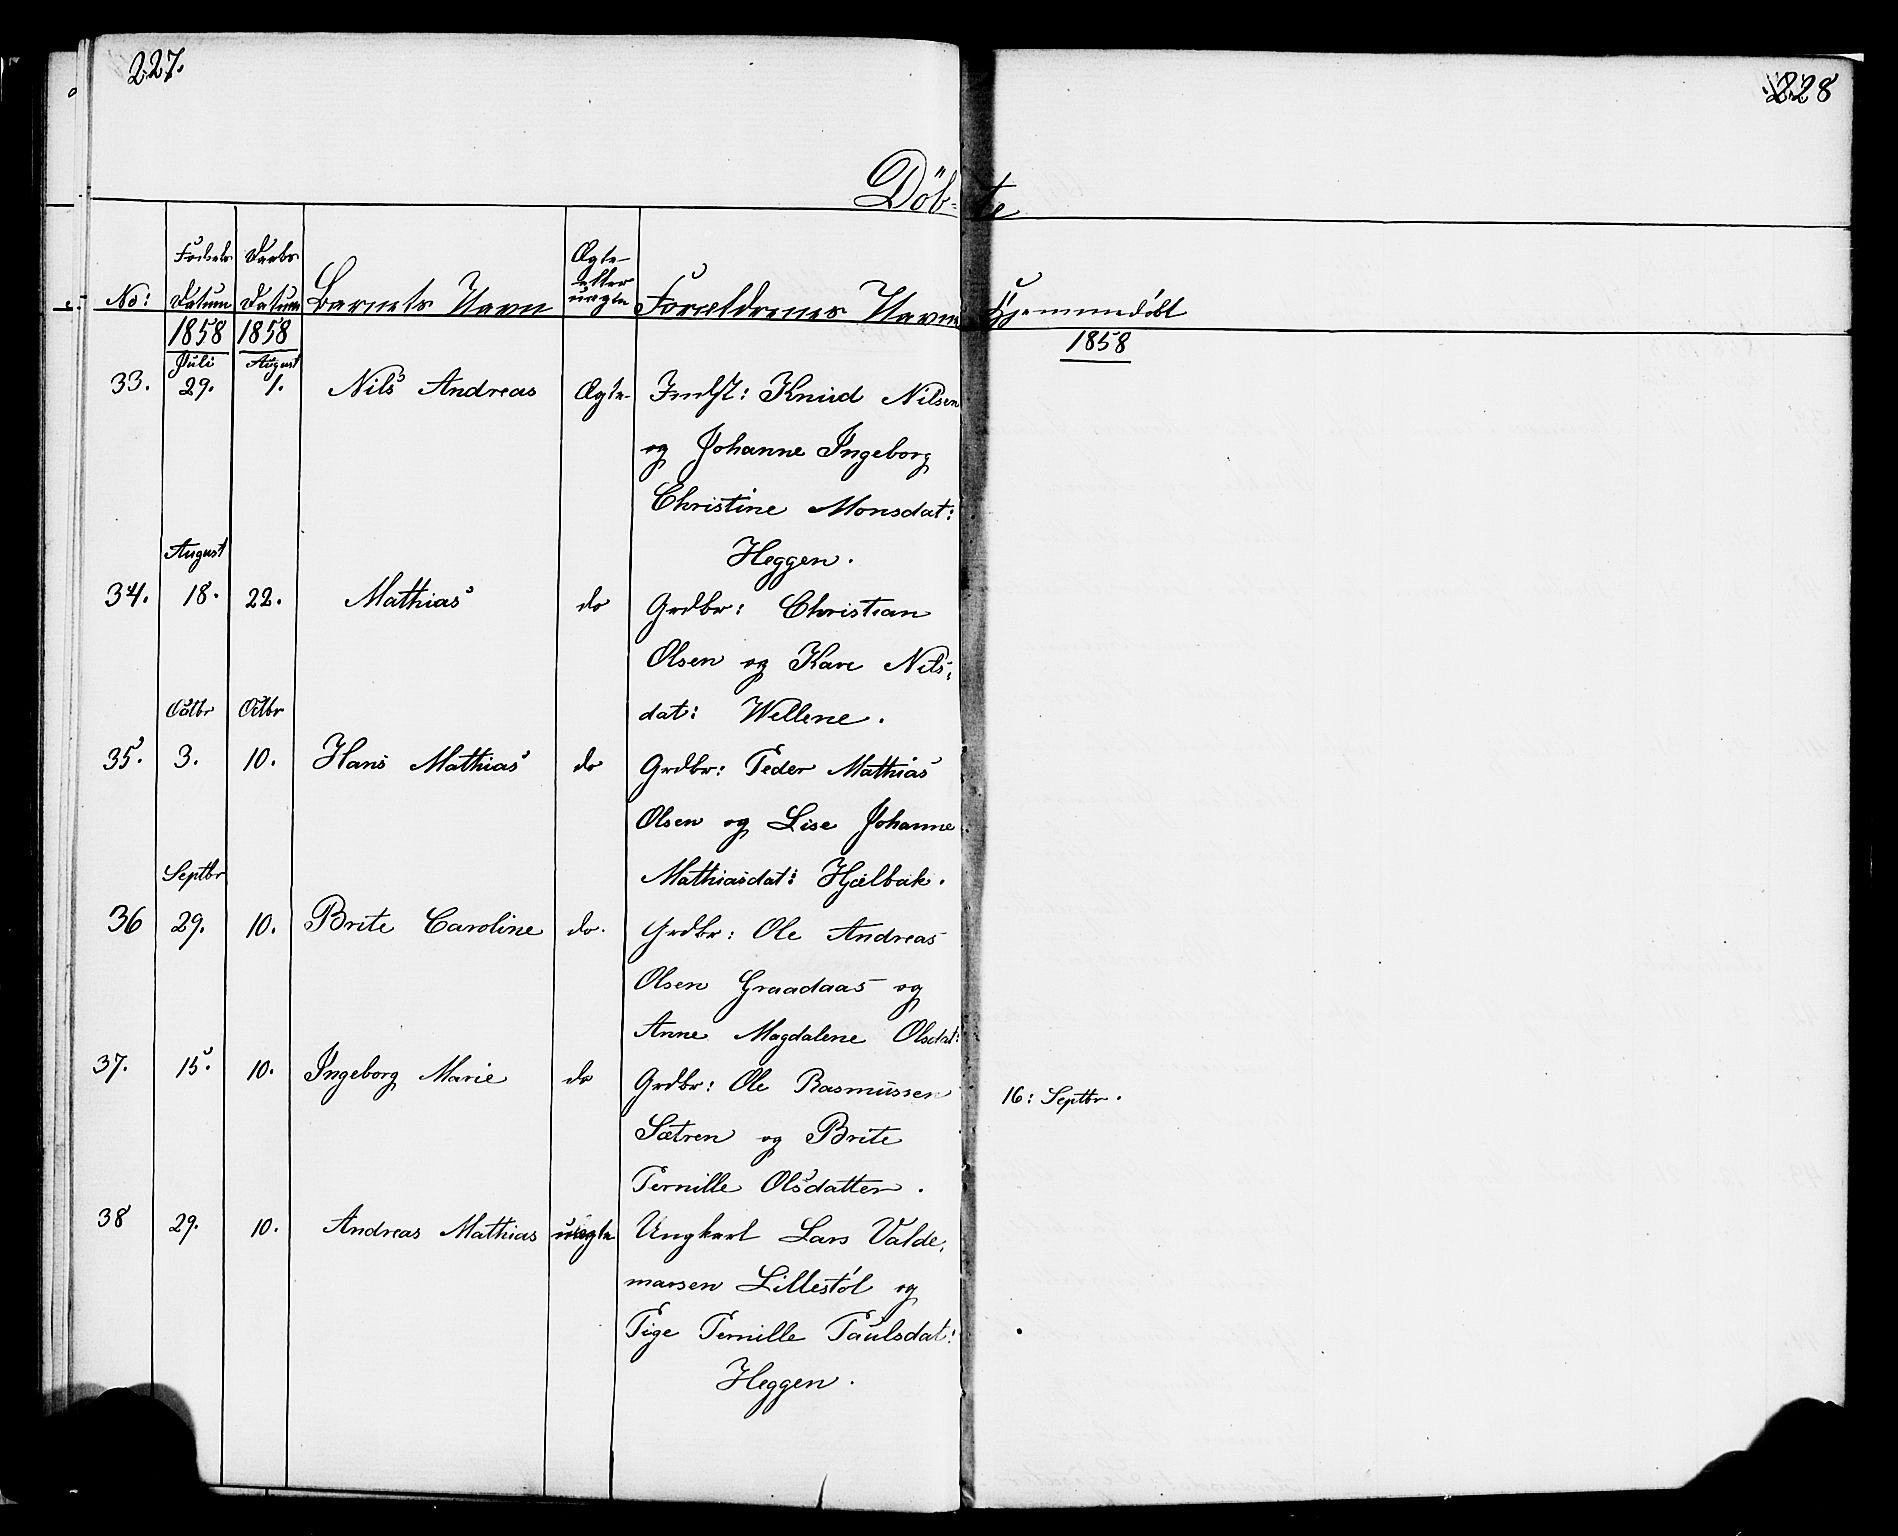 227.
228
Döb-te
No: Fødsels Datum Daabs Datum Barnets Navn Ægte eller uægte Forældrenes Navne Hjemmedøbt
1858 1858 1858
Juli August
33. 29. 1. Nils Andreas Ægte Indst: Knud Nilsen
og Johanne Ingeborg
Christine Monsdat:
August Heggen.
34. 18. 22. Mathias do Grdbr: Christian
Olsen og Kare Nils-
Octbr Octbr dat: Wellene.
35. 3. 10. Hans Mathias do Grdbr: Peder Mathias
Olsen og Lise Johanne
Septbr Mathiasdat: Hjælbak.
36 29. 10. Brite Caroline do. Grdbr: Ole Andreas
Olsen Graadaas og
Anne Magdalene Olsdat:
37. 15. 10. Ingeborg Marie do Grdbr: Ole Rasmussen 16: Septbr.
Sætren og Brite
Pernille Olsdatter.
38 29. 10. Andreas Mathias uægte Ungkarl Lars Valde-
marsen Lillestøl og
Pige Pernille Paulsdat:
Heggen.